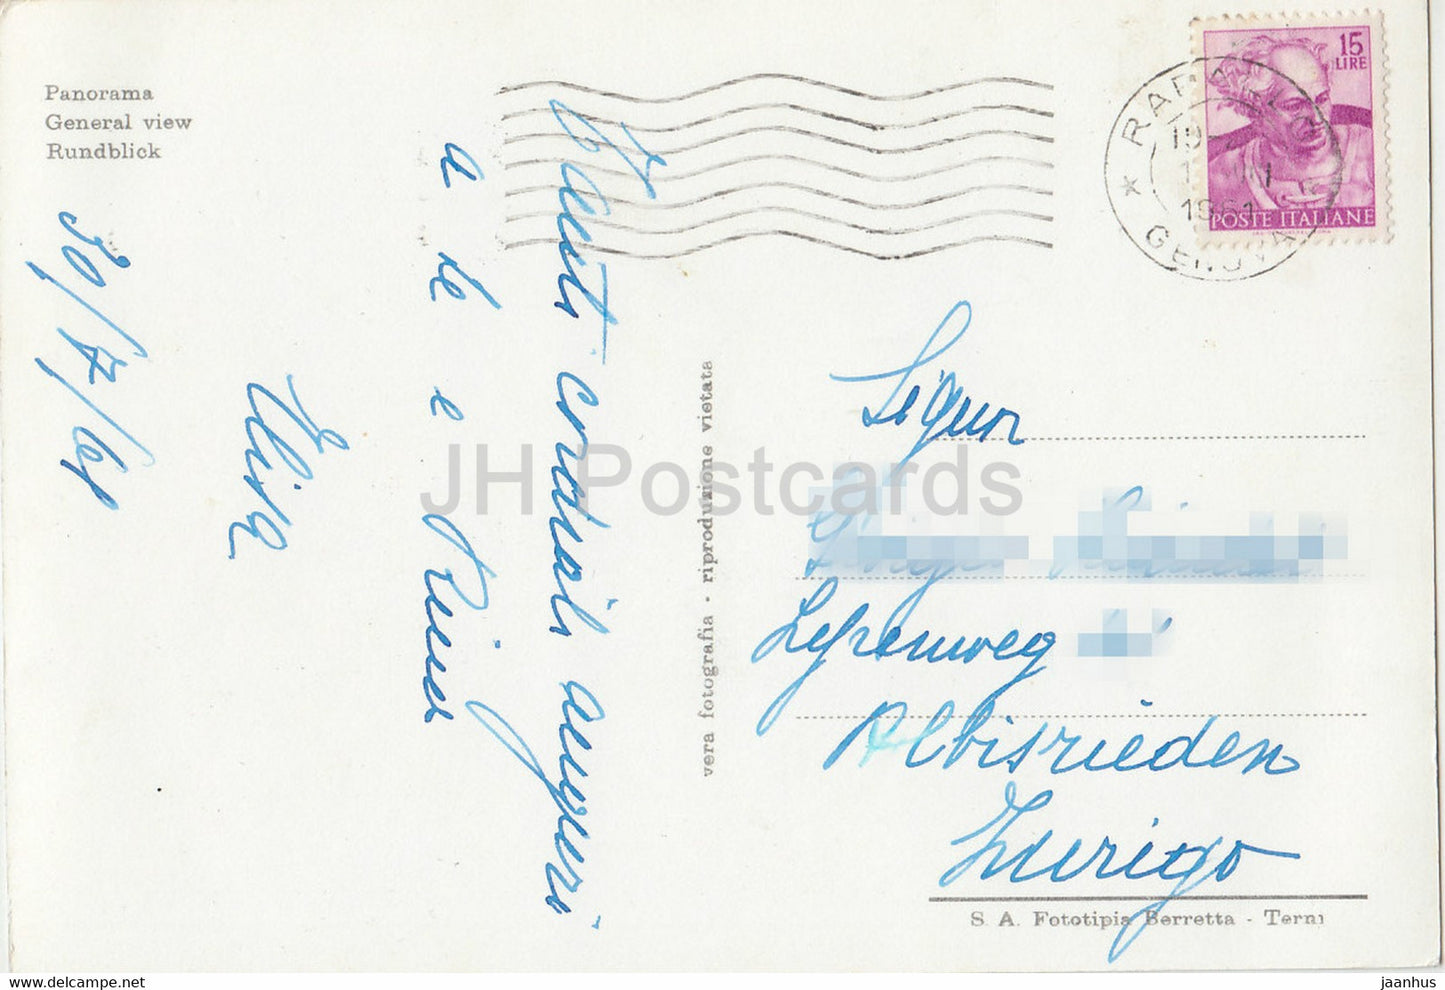 Panorama
General view
Rundblick
30/7/61
Tanti cordiali auguri
a te e
Elisa
vera fotografia - riproduzione vietata
15
LIRE
POSTE ITALIANE
RAPALLO
GENOVA
1961
Signor
Albisrieden
Zurigo
S. A. Fototipia Berretta - Terni
JH Postcards
jaanhus